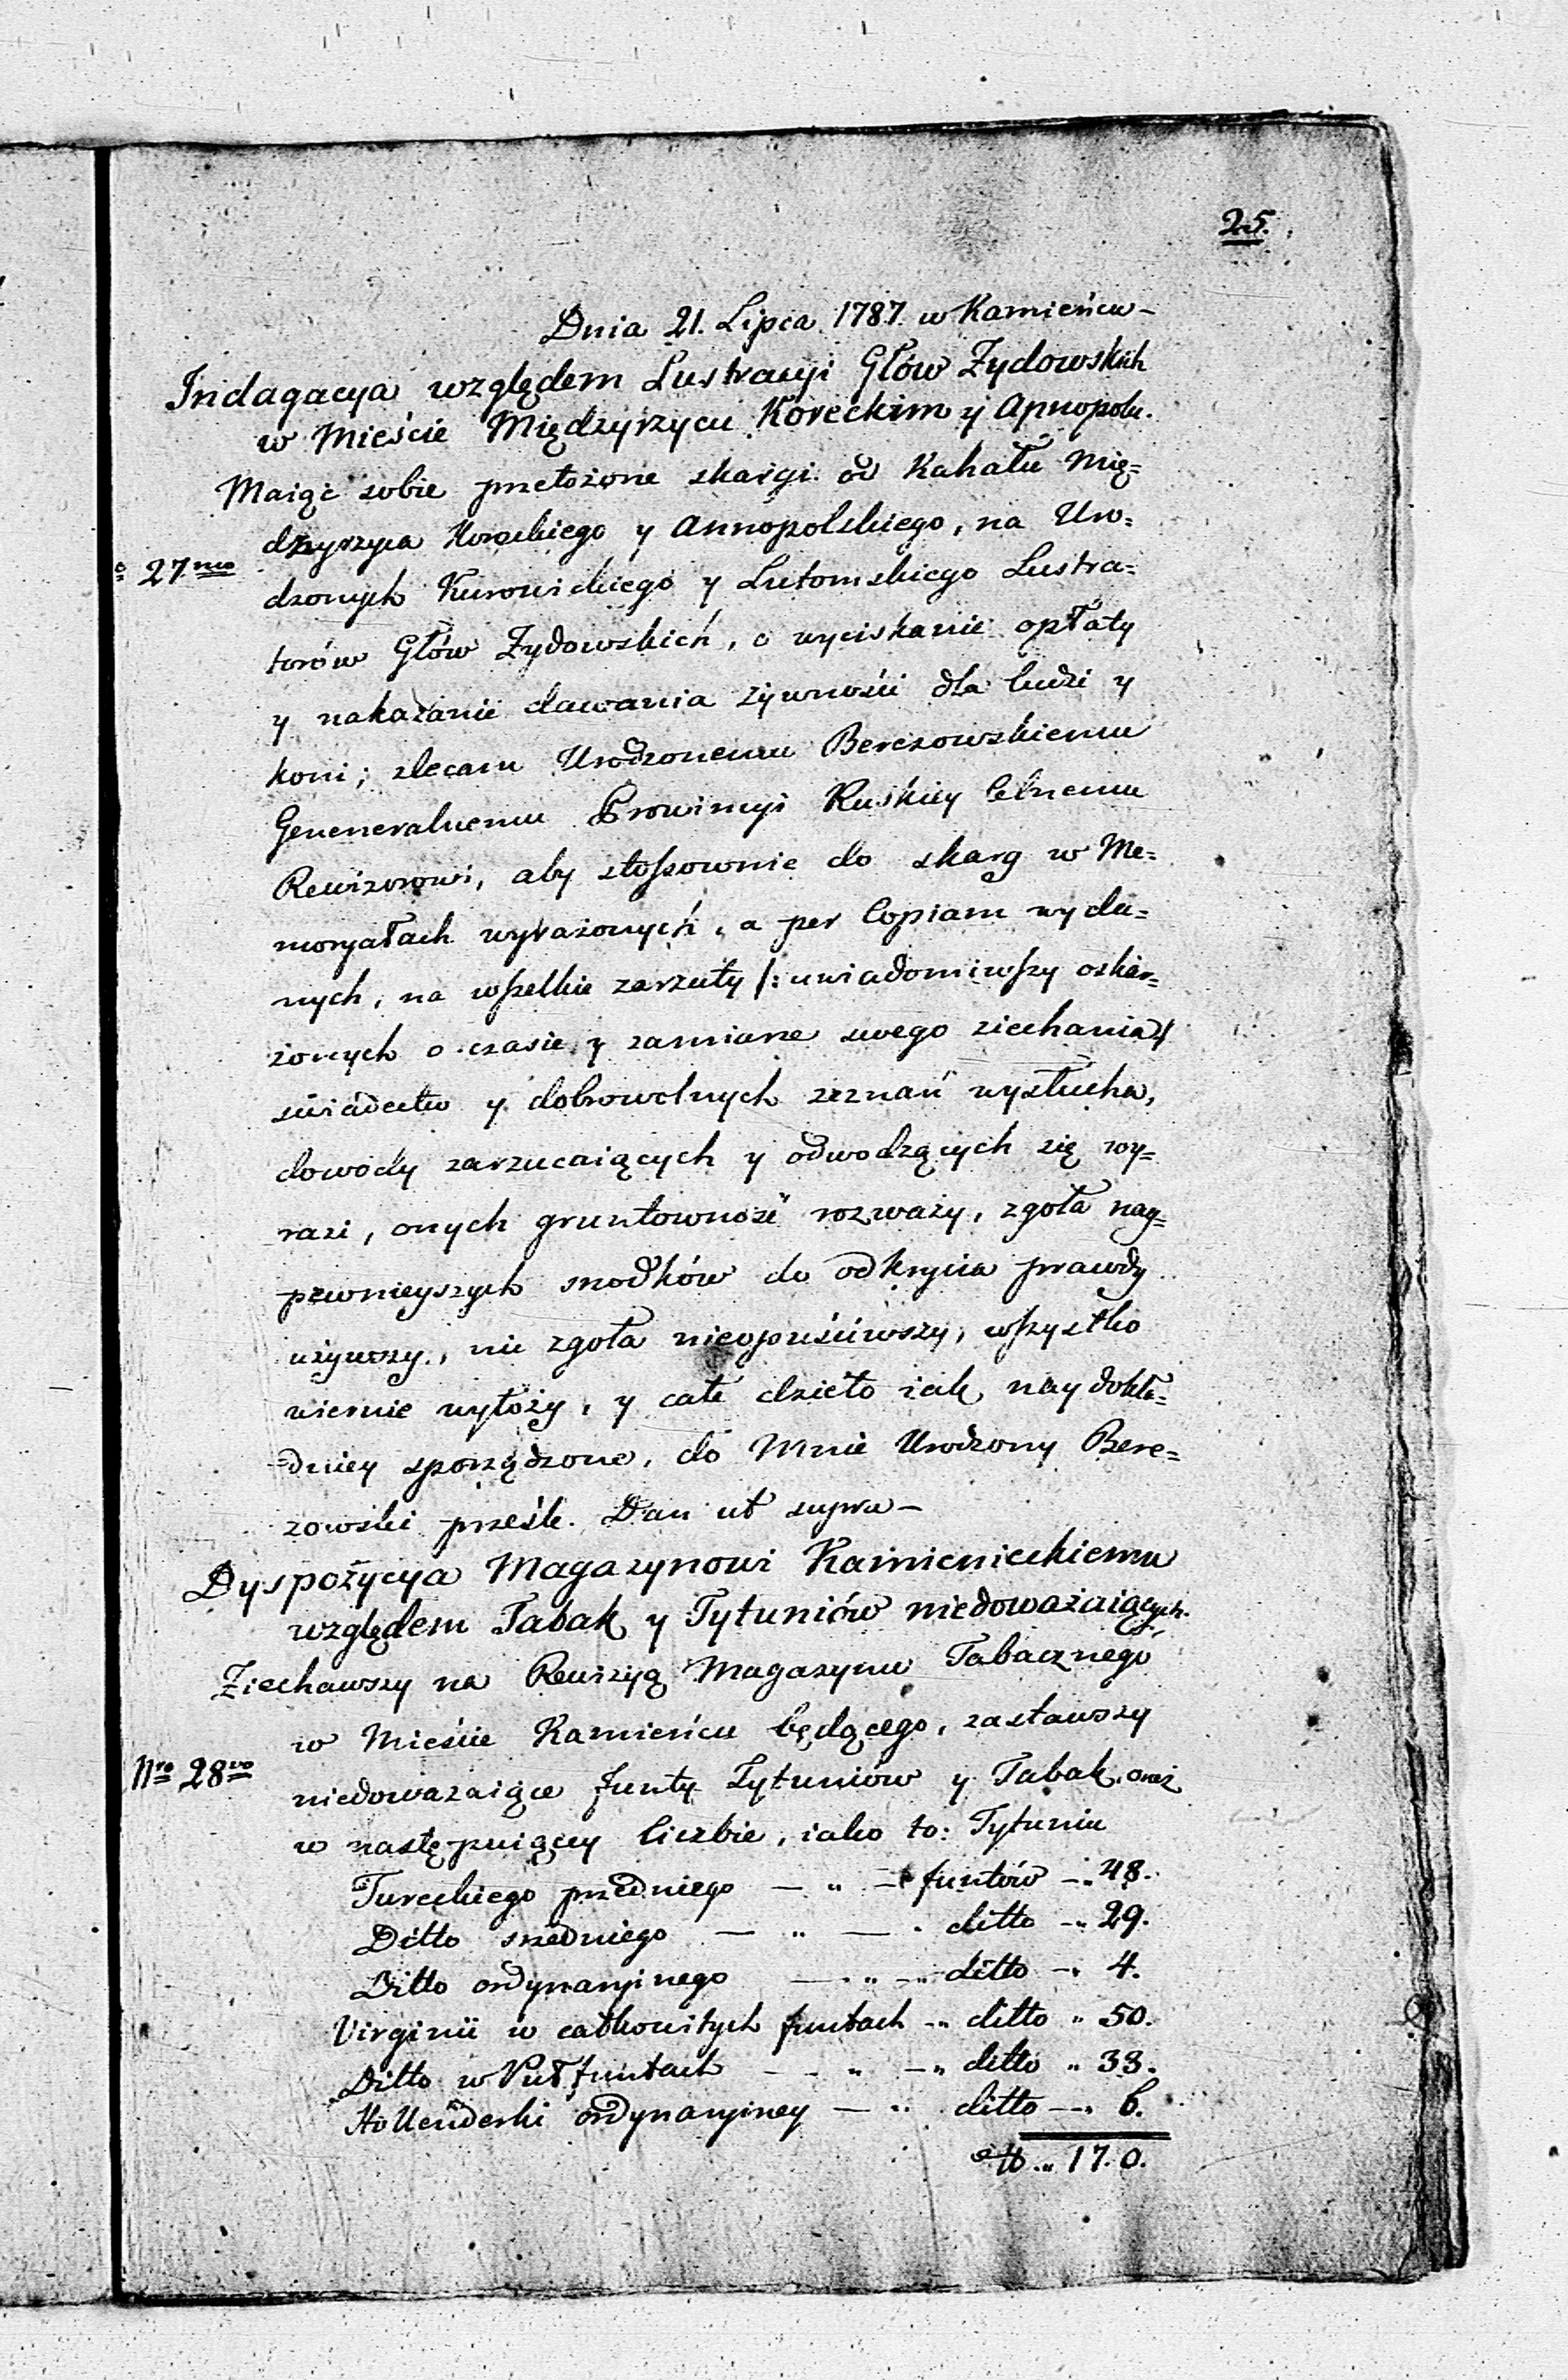 25.
Dnia 21. Lipca 1787. w Kamieńcu –
Indagacya względem Lustracyi Głów Żydowskich
w Mieście Międzyrzycu Koreckim y Annopolu.
Maiąc sobie przełożone skargi od Kahału Mię=
dzyrzyca Koreckiego y Annopolskiego, na Uro=
27.mo
dzonych Kurowickiego y Lutomskiego Lustra=
torów Głów Żydowskich, o wyciskanie opłaty
y nakazanie dawania żywności dla ludzi y
koni; zlecam Urodzonemu Berezowskiemu
Geueneralnemu Prowincyi Ruskiey Celnemu
Rewizorowi, aby stoſsownie do skarg w Me=
moryałach wyrażonych, a per Copiam wyda=
nych, na wſzelkie zarzuty /: uwiadomiwſzy oskar=
żonych o czasie y zamiarze swego ziechania :/
świadectw y dobrowolnych zeznań wysłucha,
dowody zarzucaiących y odwodzących się wy=
razi, onych gruntowność rozważy, zgoła nay=
pewnieyszych srodków do odkrycia prawdy
używszy, nic zgoła nieopuściwszy, wſzystko
wiernie wyłoży, y całe dzieło iak naydokła=
dniey sporządzone, do Mnie Urodzony Bere=
zowski prześle. Dan ut supra –
Dyspozycya Magazynowi Kamienieckiemu
względem Tabak y Tytuniów niedoważaiących.
Ziechawszy na Rewizyą Magazynu Tabacznego
w Mieście Kamieńcu będącego, zastawszy
Nro 28vo
niedoważaiące funty Tytuniów y Tabak, oraz
w następuiącey liczbie, iako to: Tytuniu
Tureckiego przedniego — „ — funtów – „ 48.
Ditto sredniego — „ — ditto – „ 29.
Ditto ordynaryinego — „ – „ ditto – „ 4.
Virginii w całkowitych funtach – „ ditto „ 50.
Ditto w Pułfuntach – – „ – „ ditto „ 33.
Hollenderki ordynaryiney — „ ditto — „ 6.
„ 170.